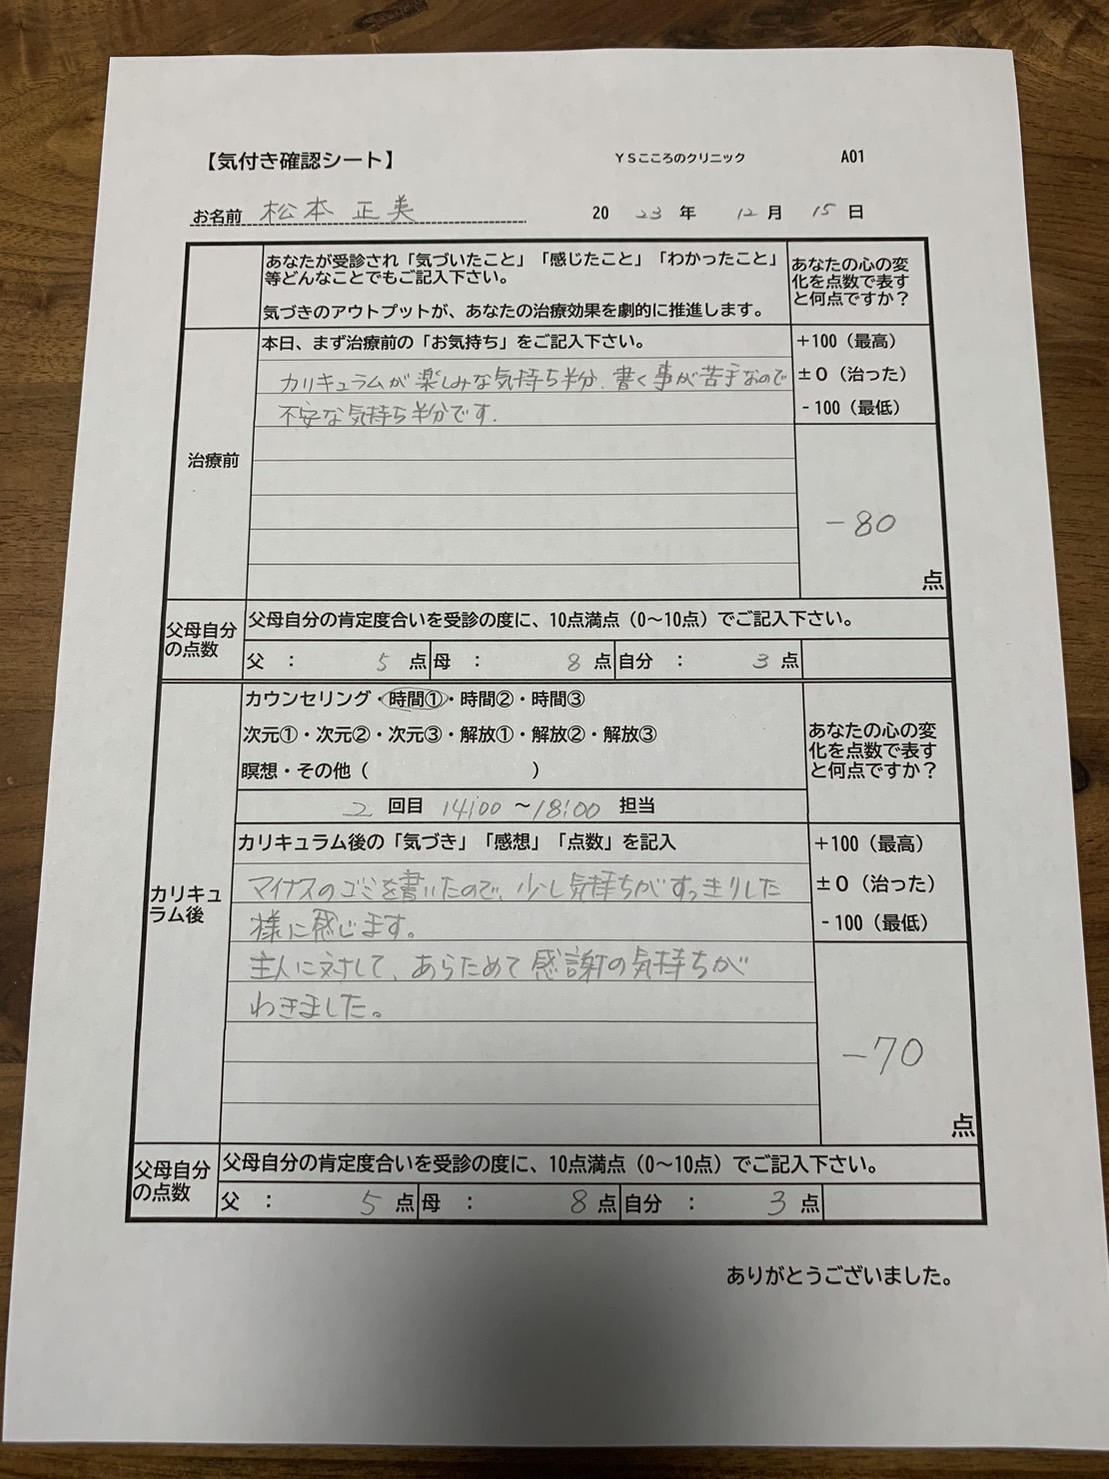 【気付き確認シート】 ＹＳこころのクリニック A01
お名前 松本 正美 20 23 年 12 月 15 日
あなたが受診され「気づいたこと」「感じたこと」「わかったこと」
等どんなことでもご記入下さい。
気づきのアウトプットが、あなたの治療効果を劇的に推進します。
あなたの心の変
化を点数で表す
と何点ですか？
治療前
本日、まず治療前の「お気持ち」をご記入下さい。
カリキュラムが楽しみな気持ち半分、書く事が苦手なので
不安な気持ち半分です.
+100（最高）
±０（治った）
- 100（最低）
-80
点
父母自分
の点数
父母自分の肯定度合いを受診の度に、10点満点（0～10点）でご記入下さい。
父 ： 5 点 母 ： 8 点 自分 ： 3 点
カリキュ
ラム後
カウンセリング・時間①・時間②・時間③
次元①・次元②・次元③・解放①・解放②・解放③
瞑想・その他（ ）
2 回目 14:00 ～18:00 担当
あなたの心の変
化を点数で表す
と何点ですか？
カリキュラム後の「気づき」「感想」「点数」を記入
マイナスのゴミを書いたので、少し気持ちがすっきりした
様に感じます。
主人に対して、あらためて感謝の気持ちが
わきました。
+100（最高）
±０（治った）
- 100（最低）
-70
点
父母自分
の点数
父母自分の肯定度合いを受診の度に、10点満点（0～10点）でご記入下さい。
父 ： 5 点 母 ： 8 点 自分 ： 3 点
ありがとうございました。